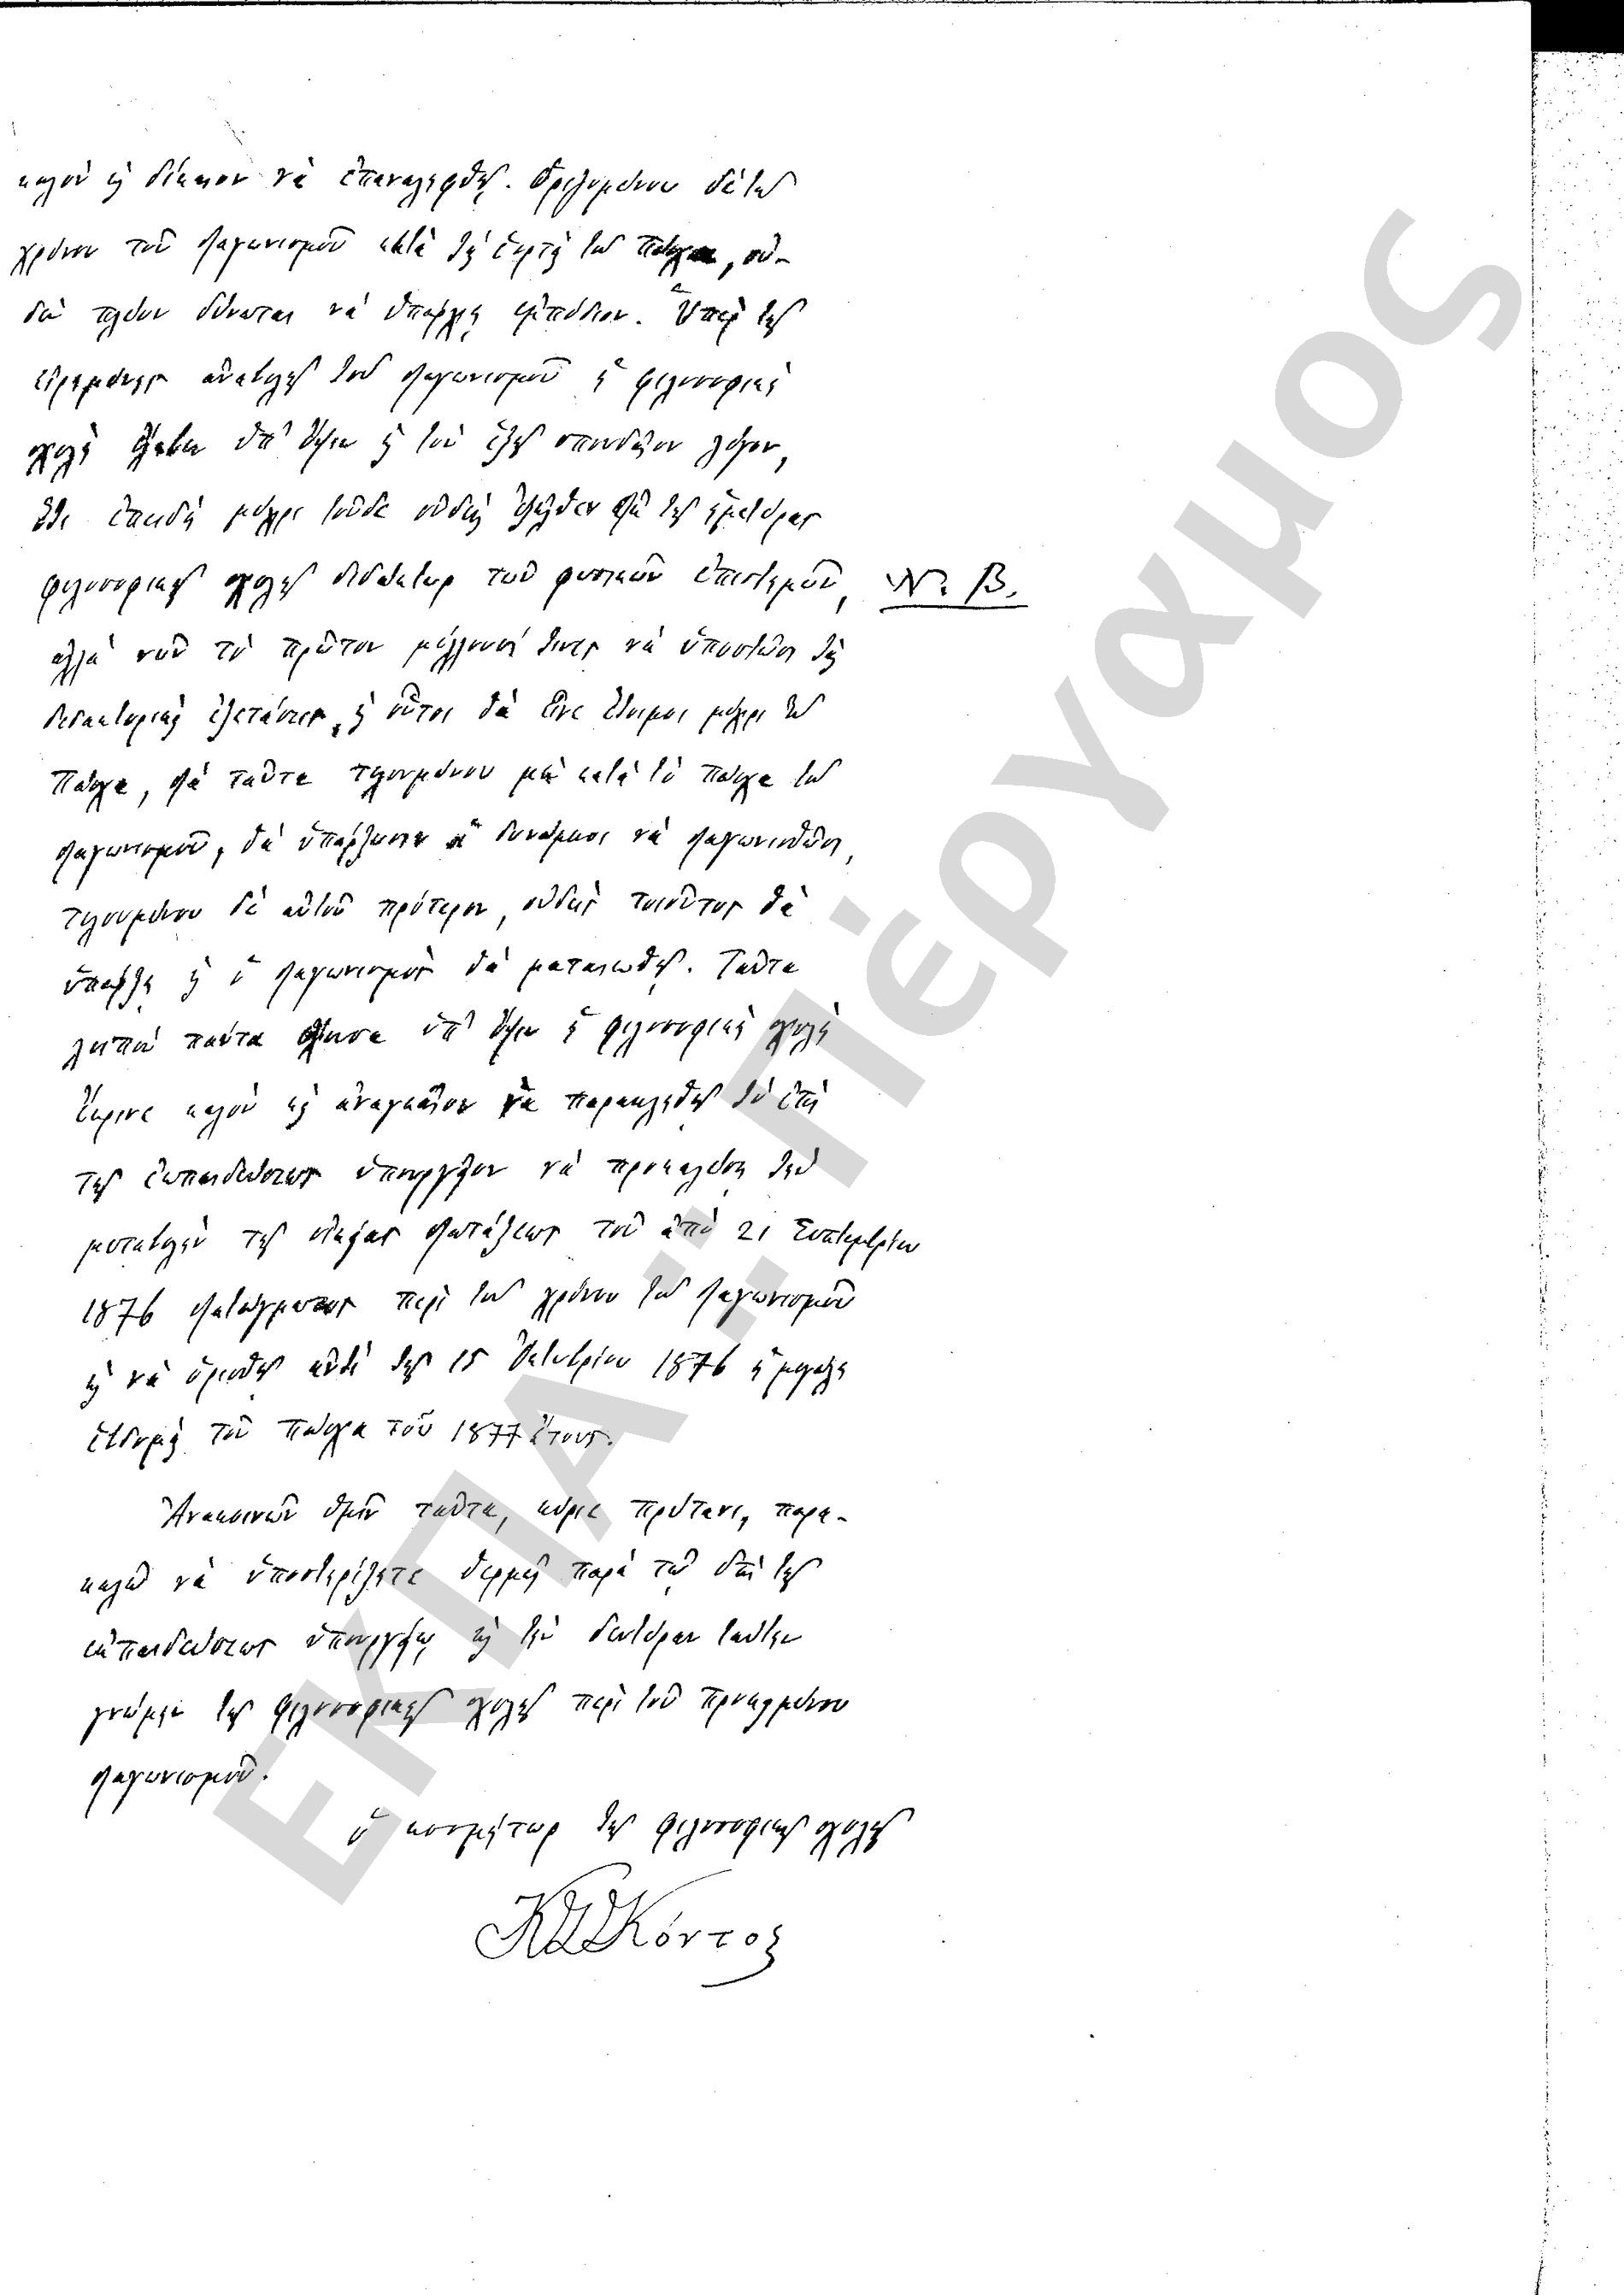 καλὸν ἢ δίκαιον νὰ ἐπαναληφθῇ. Ὁριζομένου δὲ τοῦ
χρόνου τοῦ διαγωνισμοῦ κατὰ τὴν ἑορτὴν τοῦ Πάσχα, οὐ-
δὲν πλέον δύναται νὰ ὑπάρχῃ ἐμπόδιον. Ὑπὲρ τῆς
εἰρημένης ἀναβολῆς τοῦ διαγωνισμοῦ ἡ φιλοσοφικὴ
σχολὴ ὑπ' ὄψιν καὶ τὸν ἑξῆς σπουδαῖον λόγον,
ὅτι ἐπειδὴ μέχρι τοῦδε οὐδεὶς ἐξῆλθεν ἐκ τῆς ἡμετέρας
φιλοσοφικῆς σχολῆς διδάκτωρ τῶν φυσικῶν ἐπιστημῶν, N. B.
ἀλλὰ νῦν τὸ πρῶτον μέλλουσί τινες νὰ ὑποστῶσι τὰς
διδακτορικὰς ἐξετάσεις, καὶ οὗτοι θὰ εἶνε ἕτοιμοι μέχρι τοῦ
Πάσχα, διὰ ταῦτα τελουμένου μὲν κατὰ τὸ Πάσχα τοῦ
διαγωνισμοῦ, θὰ ὑπάρξωσιν οἱ δυνάμενοι νὰ διαγωνισθῶσι,
τελουμένου δὲ αὐτοῦ πρότερον, οὐδεὶς τοιοῦτος θὰ
ὑπάρξῃ καὶ ὁ διαγωνισμὸς θὰ ματαιωθῇ. Ταῦτα
λοιπὸν πάντα ἔχουσα ὑπ' ὄψιν ἡ φιλοσοφικὴ σχολὴ
ἔκρινε καλὸν καὶ ἀναγκαῖον νὰ παρακληθῇ τὸ ἐπὶ
τῆς ἐκπαιδεύσεως ὑπουργεῖον νὰ προκαλέσῃ τὴν
μεταβολὴν τῆς διατάξεως τοῦ ἀπὸ 21 Σεπτεμβρίου
1876 διατάγματος περὶ τοῦ χρόνου τοῦ διαγωνισμοῦ
καὶ νὰ ὁρισθῇ ἀντὶ τῆς 15 Ὀκτωβρίου 1876 ἡ μεγάλη
ἑβδομὰς τοῦ Πάσχα τοῦ 1877 ἔτους.
Ἀνακοινῶν ὑμῖν ταῦτα, κύριε Πρύτανι, παρα-
καλῶ νὰ ὑποστηρίξητε θερμῶς παρὰ τῷ ἐπὶ τῆς
ἐκπαιδεύσεως ὑπουργείῳ καὶ τὴν δευτέραν ταύτην
γνώμην τῆς φιλοσοφικῆς σχολῆς περὶ τοῦ προκειμένου
διαγωνισμοῦ.
ὁ κοσμήτωρ τῆς φιλοσοφικῆς σχολῆς
Κ Σ Κόντος
ΕΚΠΑ :: Πέργαμος